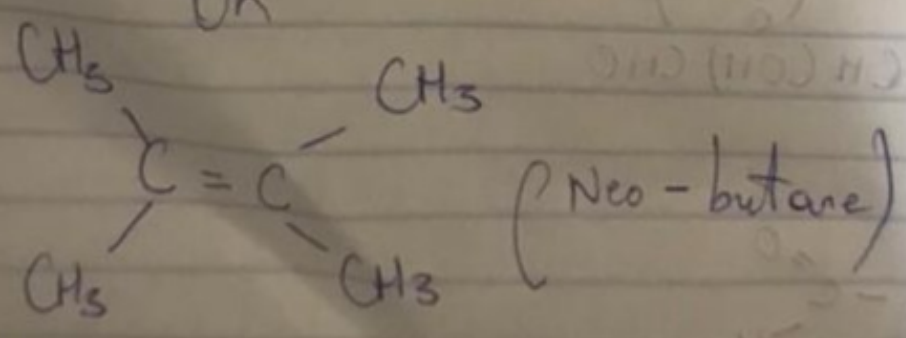 CH3 CH3
C = C (Neo-butane)
CH3 CH3